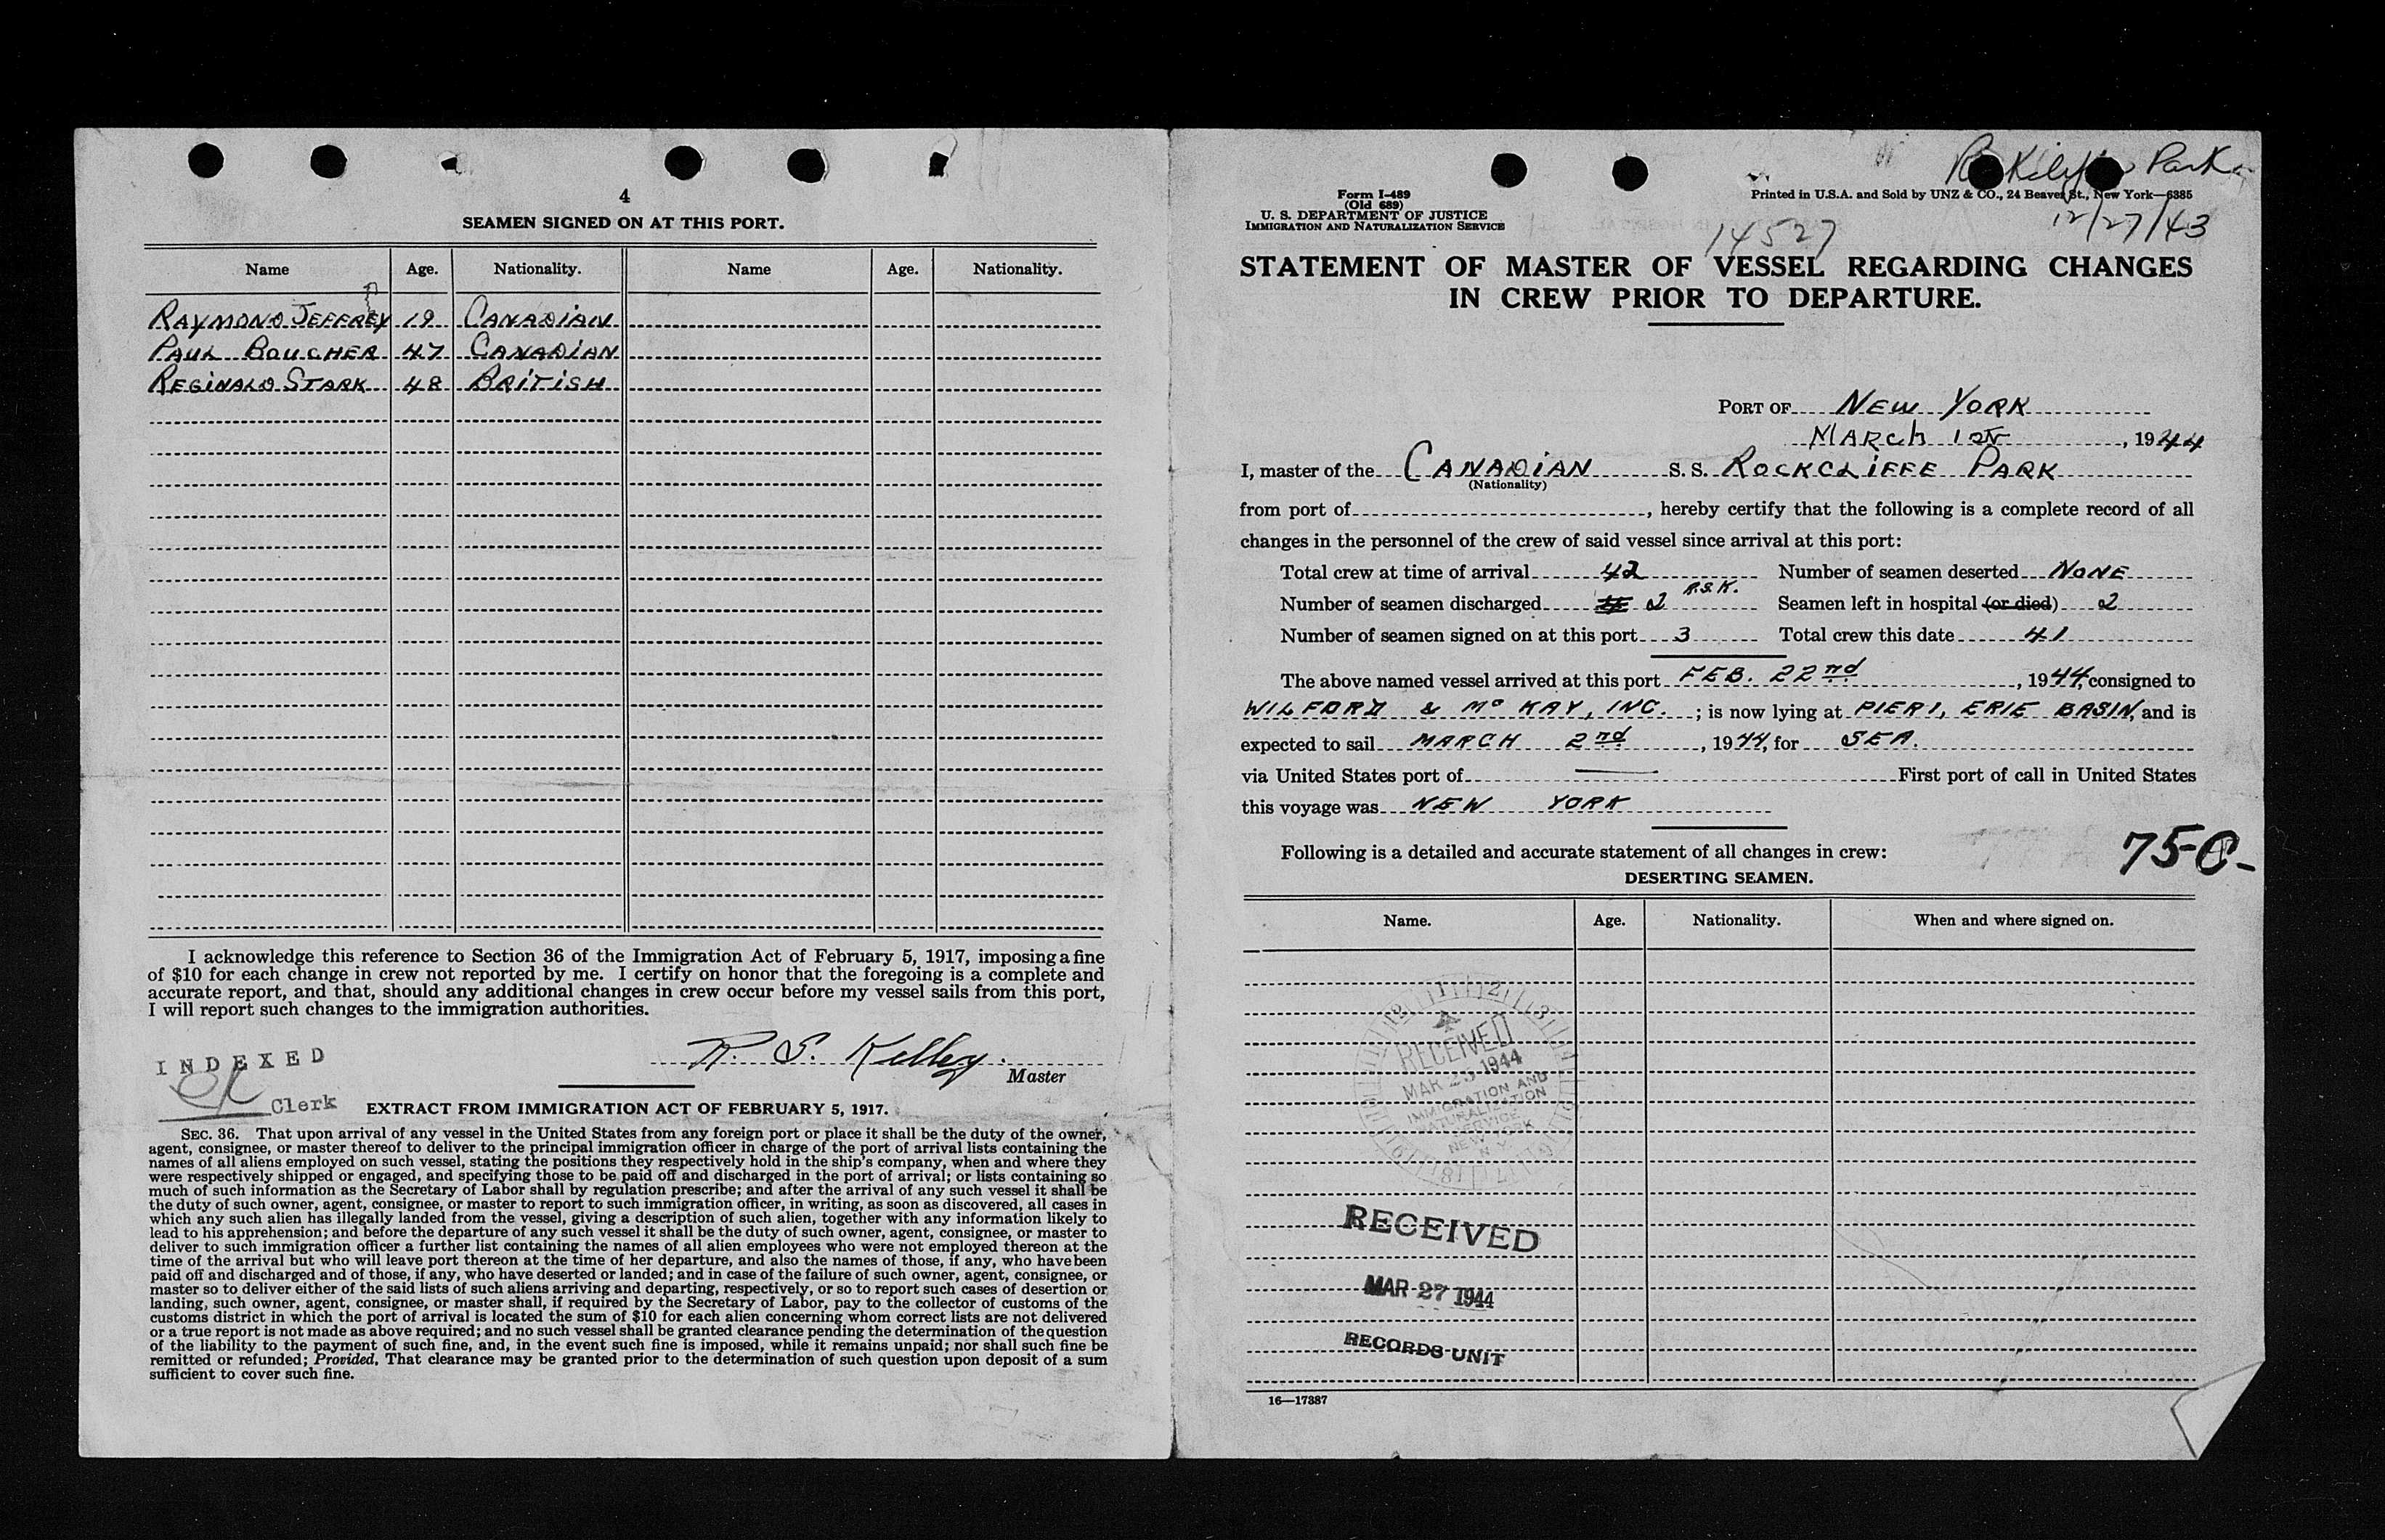 4
SEAMEN SIGNED ON AT THIS PORT.
Name Age. Nationality. Name Age. Nationality.
RAYMOND JEFFREY 19 CANADIAN
PAUL BOUCHER 47 CANADIAN
REGINALD STARK 48 BRITISH
I acknowledge this reference to Section 36 of the Immigration Act of February 5, 1917, imposing a fine
of $10 for each change in crew not reported by me. I certify on honor that the foregoing is a complete and
accurate report, and that, should any additional changes in crew occur before my vessel sails from this port,
I will report such changes to the immigration authorities.
R. S. Kelley.
Master
INDEXED
Clerk
EXTRACT FROM IMMIGRATION ACT OF FEBRUARY 5, 1917.
SEC. 36. That upon arrival of any vessel in the United States from any foreign port or place it shall be the duty of the owner,
agent, consignee, or master thereof to deliver to the principal immigration officer in charge of the port of arrival lists containing the
names of all aliens employed on such vessel, stating the positions they respectively hold in the ship's company, when and where they
were respectively shipped or engaged, and specifying those to be paid off and discharged in the port of arrival; or lists containing so
much of such information as the Secretary of Labor shall by regulation prescribe; and after the arrival of any such vessel it shall be
the duty of such owner, agent, consignee, or master to report to such immigration officer, in writing, as soon as discovered, all cases in
which any such alien has illegally landed from the vessel, giving a description of such alien, together with any information likely to
lead to his apprehension; and before the departure of any such vessel it shall be the duty of such owner, agent, consignee, or master to
deliver to such immigration officer a further list containing the names of all alien employees who were not employed thereon at the
time of the arrival but who will leave port thereon at the time of her departure, and also the names of those, if any, who have been
paid off and discharged and of those, if any, who have deserted or landed; and in case of the failure of such owner, agent, consignee, or
master so to deliver either of the said lists of such aliens arriving and departing, respectively, or so to report such cases of desertion or
landing, such owner, agent, consignee, or master shall, if required by the Secretary of Labor, pay to the collector of customs of the
customs district in which the port of arrival is located the sum of $10 for each alien concerning whom correct lists are not delivered
or a true report is not made as above required; and no such vessel shall be granted clearance pending the determination of the question
of the liability to the payment of such fine, and, in the event such fine is imposed, while it remains unpaid; nor shall such fine be
remitted or refunded; Provided, That clearance may be granted prior to the determination of such question upon deposit of a sum
sufficient to cover such fine.
Park
Form I-489
(Old 689)
U. S. DEPARTMENT OF JUSTICE
IMMIGRATION AND NATURALIZATION SERVICE
Printed in U.S.A. and Sold by UNZ & CO., 24 Beaver St., New York—6385
12/27/43
14527
STATEMENT OF MASTER OF VESSEL REGARDING CHANGES
IN CREW PRIOR TO DEPARTURE.
PORT OF NEW YORK
MARCH 1st, 1944
I, master of the CANADIAN S. S. ROCKCLIFFE PARK
(Nationality)
from port of , hereby certify that the following is a complete record of all
changes in the personnel of the crew of said vessel since arrival at this port:
Total crew at time of arrival 42 Number of seamen deserted NONE
Number of seamen discharged 2 R.S.K. Seamen left in hospital (or died) 2
Number of seamen signed on at this port 3 Total crew this date 41
The above named vessel arrived at this port FEB. 22nd, 1944, consigned to
WILFORD & McKAY, INC. ; is now lying at PIER 1, ERIE BASIN, and is
expected to sail MARCH 2nd, 1944, for SEA.
via United States port of — First port of call in United States
this voyage was NEW YORK
Following is a detailed and accurate statement of all changes in crew:
750-
DESERTING SEAMEN.
Name. Age. Nationality. When and where signed on.
RECEIVED
MAR 25 1944
IMMIGRATION AND
NATURALIZATION
SERVICE
NEW YORK
N. Y.
RECEIVED
MAR 27 1944
RECORDS UNIT
16—17387